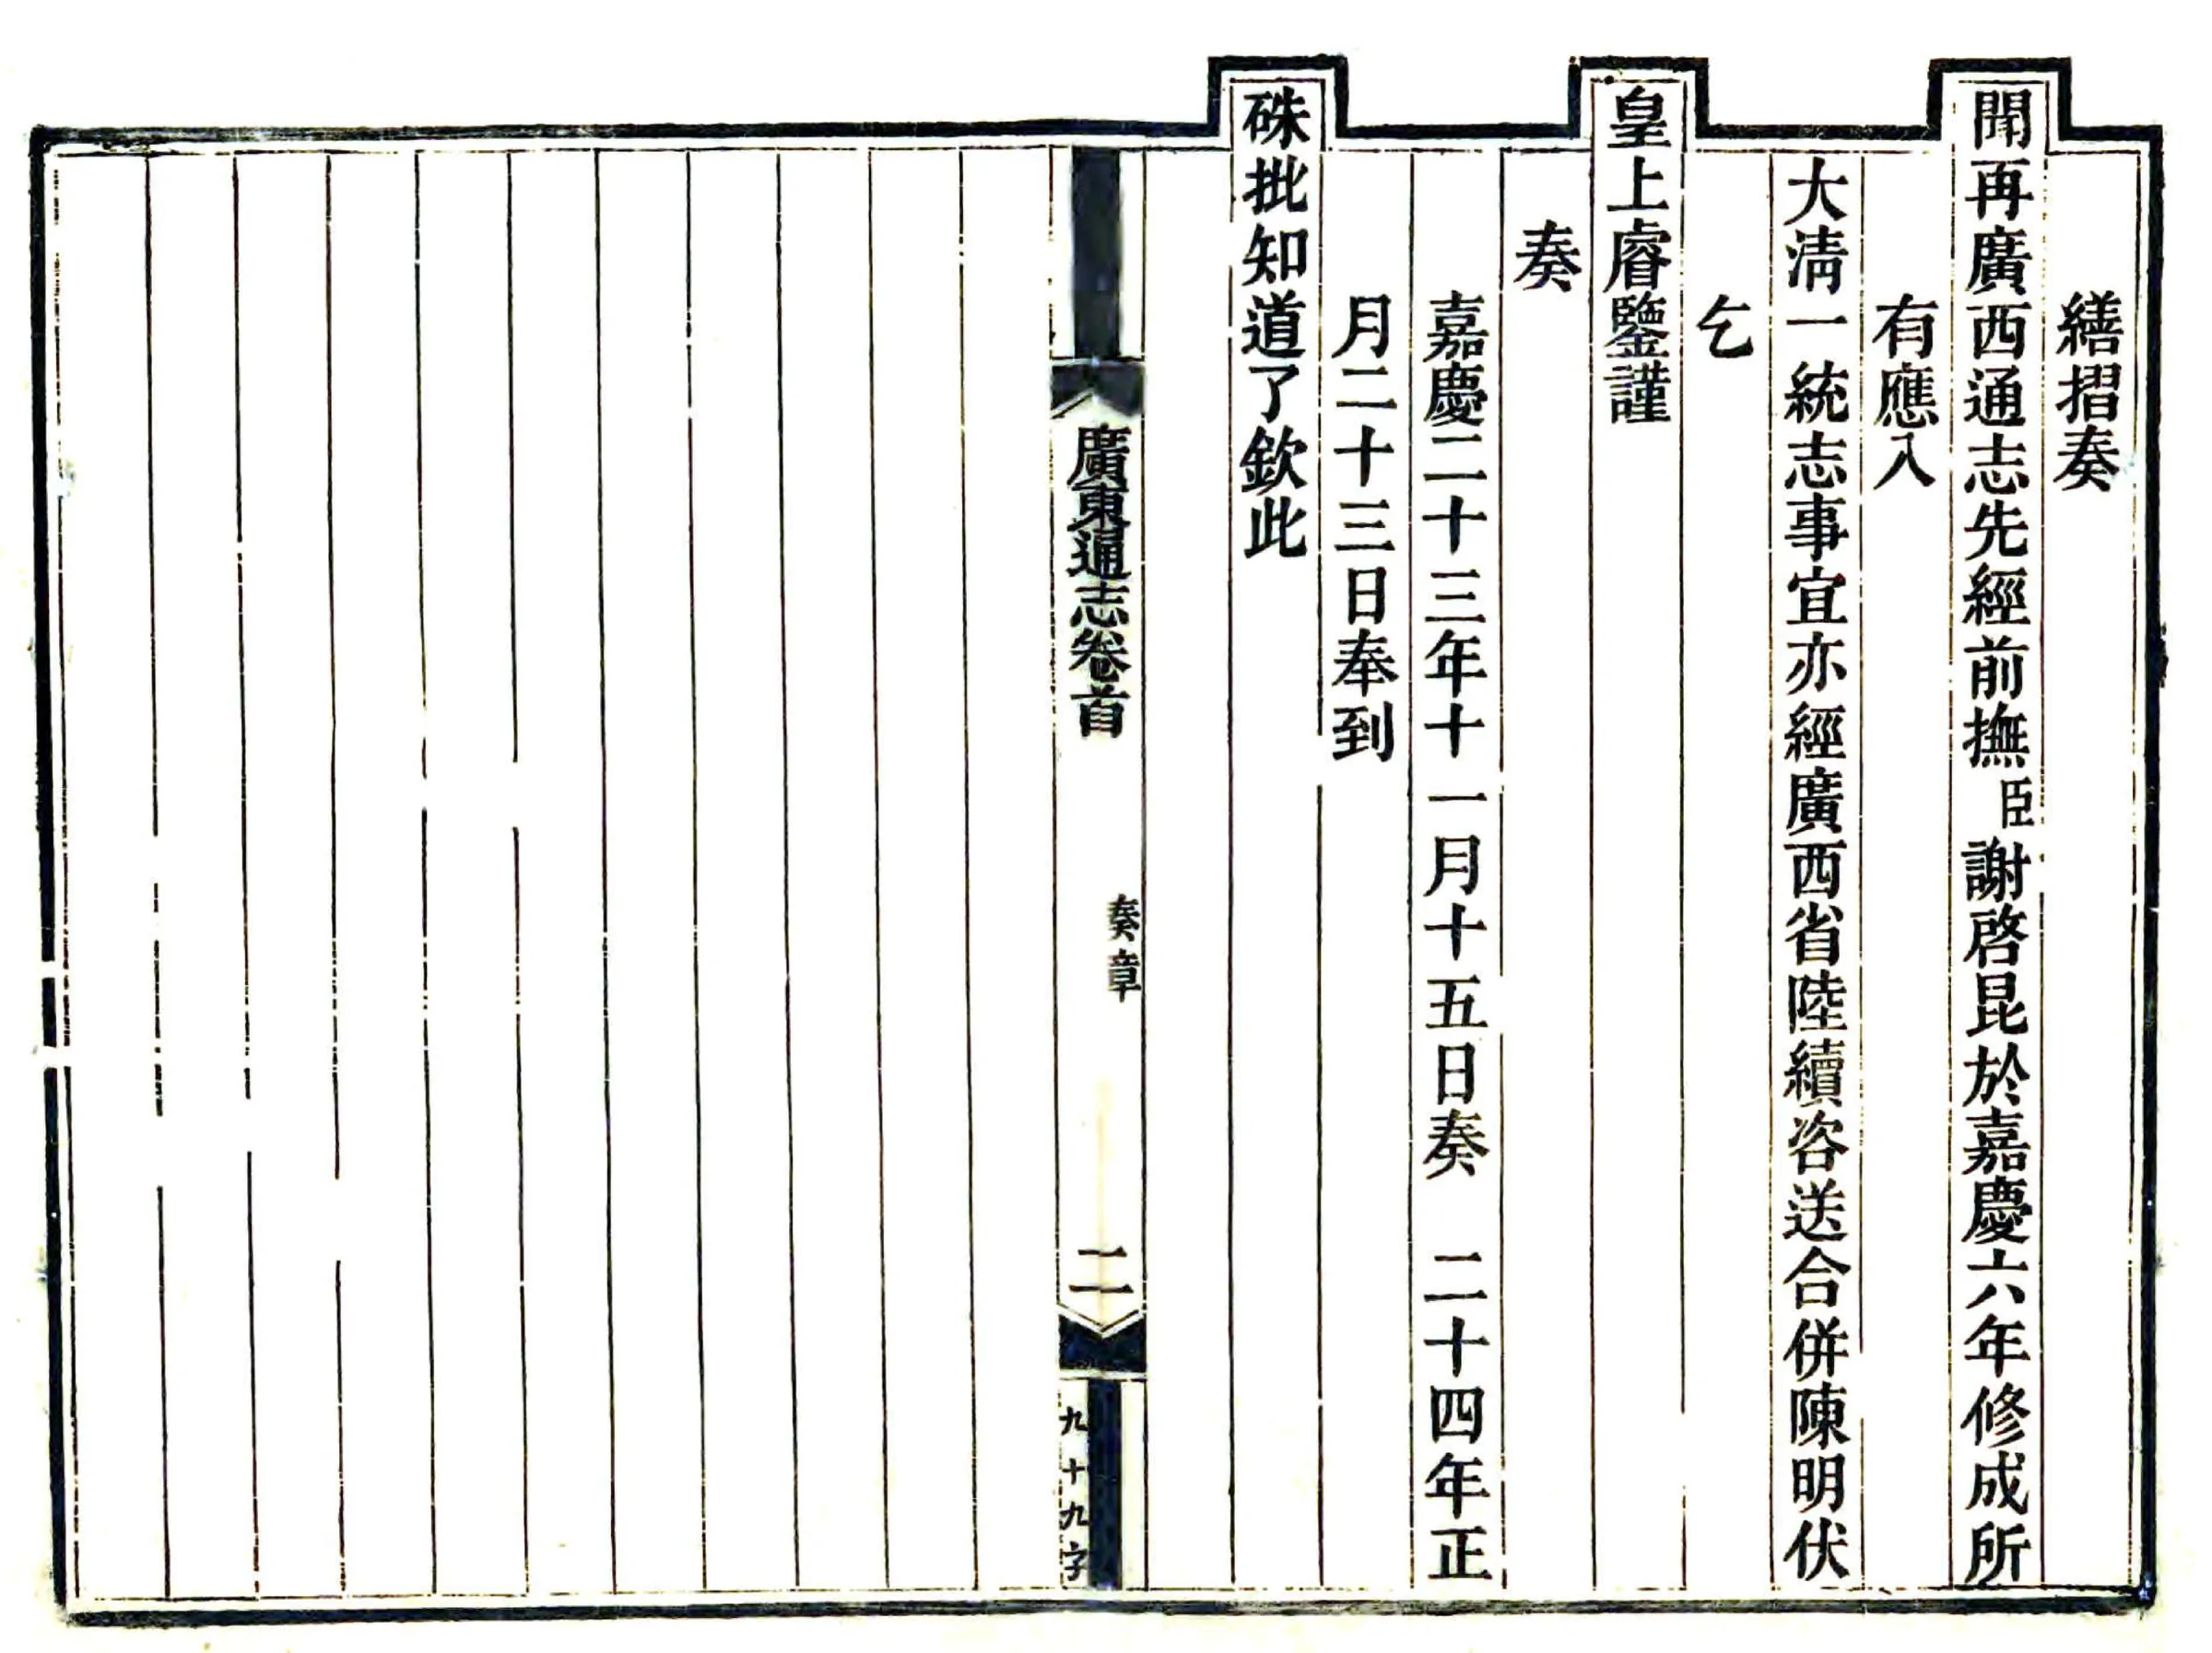 繕摺奏
聞再廣西通志先經前撫臣謝啓昆於嘉慶六年修成所
有應入
大淸一統志事宜亦經廣西省陸續咨送合併陳明伏
乞
皇上睿鑒謹
奏
嘉慶二十三年十一月十五日奏　二十四年正
月二十三日奉到
硃批知道了欽此
廣東通志卷首
奏章
二
九十九字